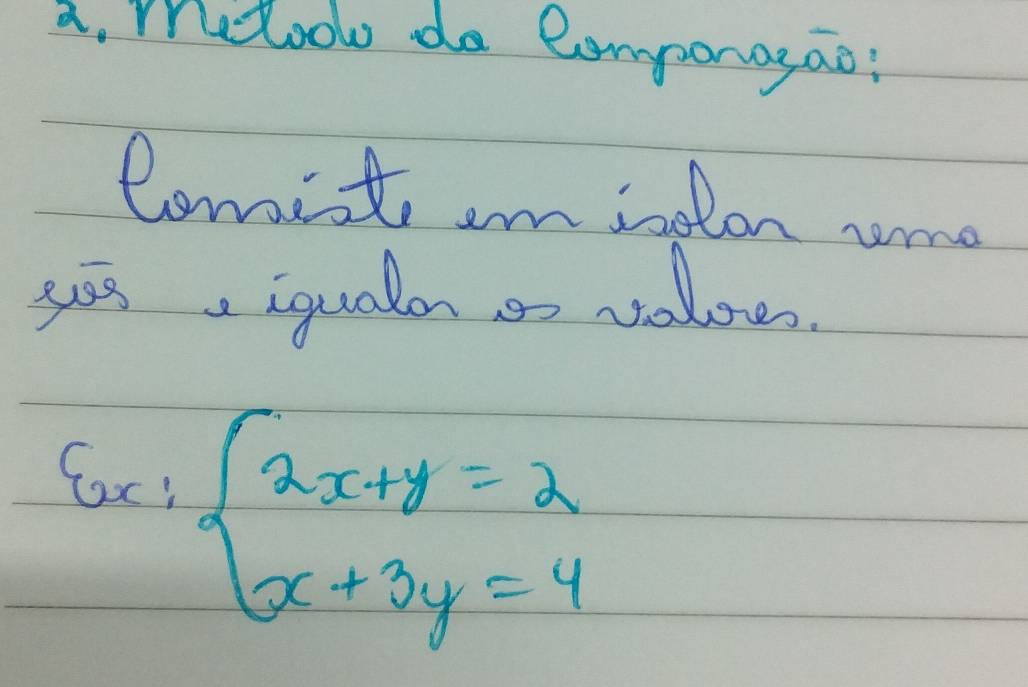 2. Método da Comparação:
Consiste em isolar uma
ções e igualar os valores.
Ex: { 2x+y = 2
x + 3y = 4